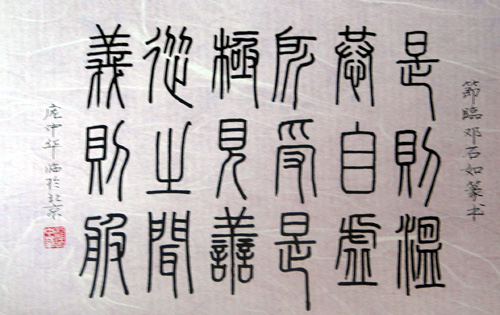 節臨邓石如篆书
是則溫
恭自虛
所受是
極見善
從之聞
義則服
庞中华临於北京